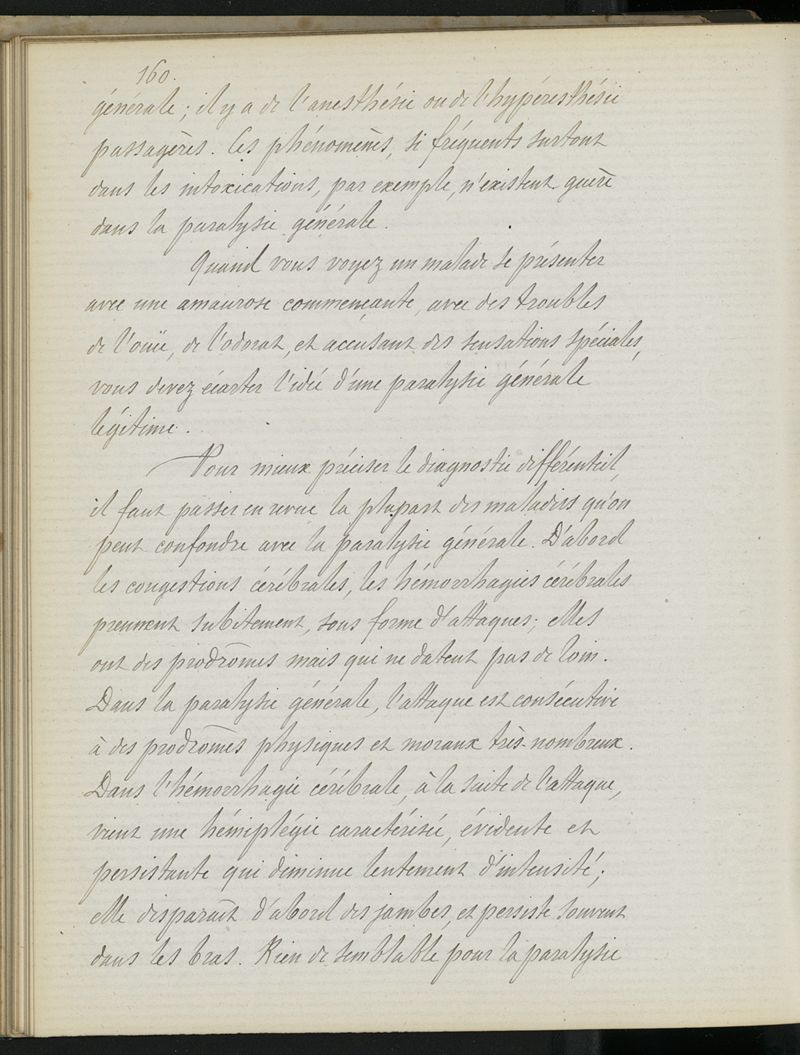 160.
générale ; il y a de l'anesthésie ou de l'hypéresthésie
passagères. Ces phénomènes, si fréquents surtout
dans les intoxications, par exemple, n'existent guère
dans la paralysie générale.
Quand vous voyez un malade se présenter
avec une amaurose commençante, avec des troubles
de l'ouïe, de l'odorat, et accusant des sensations spéciales,
vous devez écarter l'idée d'une paralysie générale
légitime.
Pour mieux préciser le diagnostic différentiel,
il faut passer en revue la plupart des maladies qu'on
peut confondre avec la paralysie générale. D'abord
les congestions cérébrales, les hémorrhagies cérébrales
prennent subitement, sous forme d'attaques ; elles
ont des prodrômes mais qui ne datent pas de loin.
Dans la paralysie générale, l'attaque est consécutive
à des prodrômes physiques et moraux très-nombreux.
Dans l'hémorrhagie cérébrale, à la suite de l'attaque,
vient une hémiplégie caractérisée, évidente et
persistante qui diminue lentement d'intensité ;
elle disparaît d'abord des jambes, et persiste souvent
dans les bras. Rien de semblable pour la paralysie